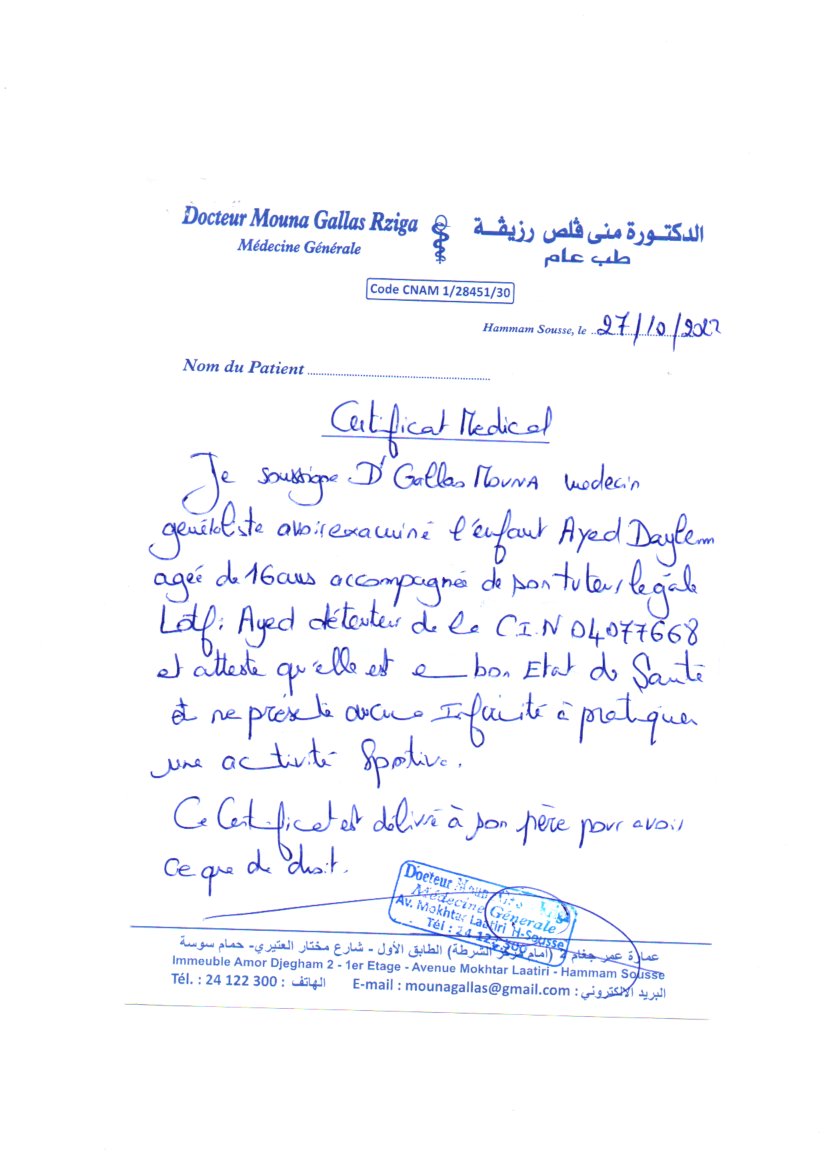 Docteur Mouna Gallas Rziga
Médecine Générale
الدكتورة منى ڨلص رزيڨة
طب عام
Code CNAM 1/28451/30
Hammam Sousse, le 27/10/2022
Nom du Patient
Certificat Medical
Je soussigne Dr Gallas MOUNA medecin
généraliste avoir examiné l'enfant Ayed Daylem
ageé de 16 ans accompagnée de son tuteur legale
Lotfi Ayed détenteur de la C.I.N 04077668
et atteste qu'elle est en bon Etat de Santé
Et ne présente aucune Infirmité à pratiquer
une activité Sportive.
Ce Certificat est délivré à son père pour avoir
ce que de droit.
Docteur Mouna
Médecine Générale
Av. Mokhtar Laatiri H-Sousse
Tél : 24 122 300
عمارة عمر جغام 2 (أمام مركز الشرطة) الطابق الأول - شارع مختار العتيري- حمام سوسة
Immeuble Amor Djegham 2 - 1er Etage - Avenue Mokhtar Laatiri - Hammam Sousse
Tél. : 24 122 300 : الهاتف E-mail : mounagallas@gmail.com : البريد الالكتروني